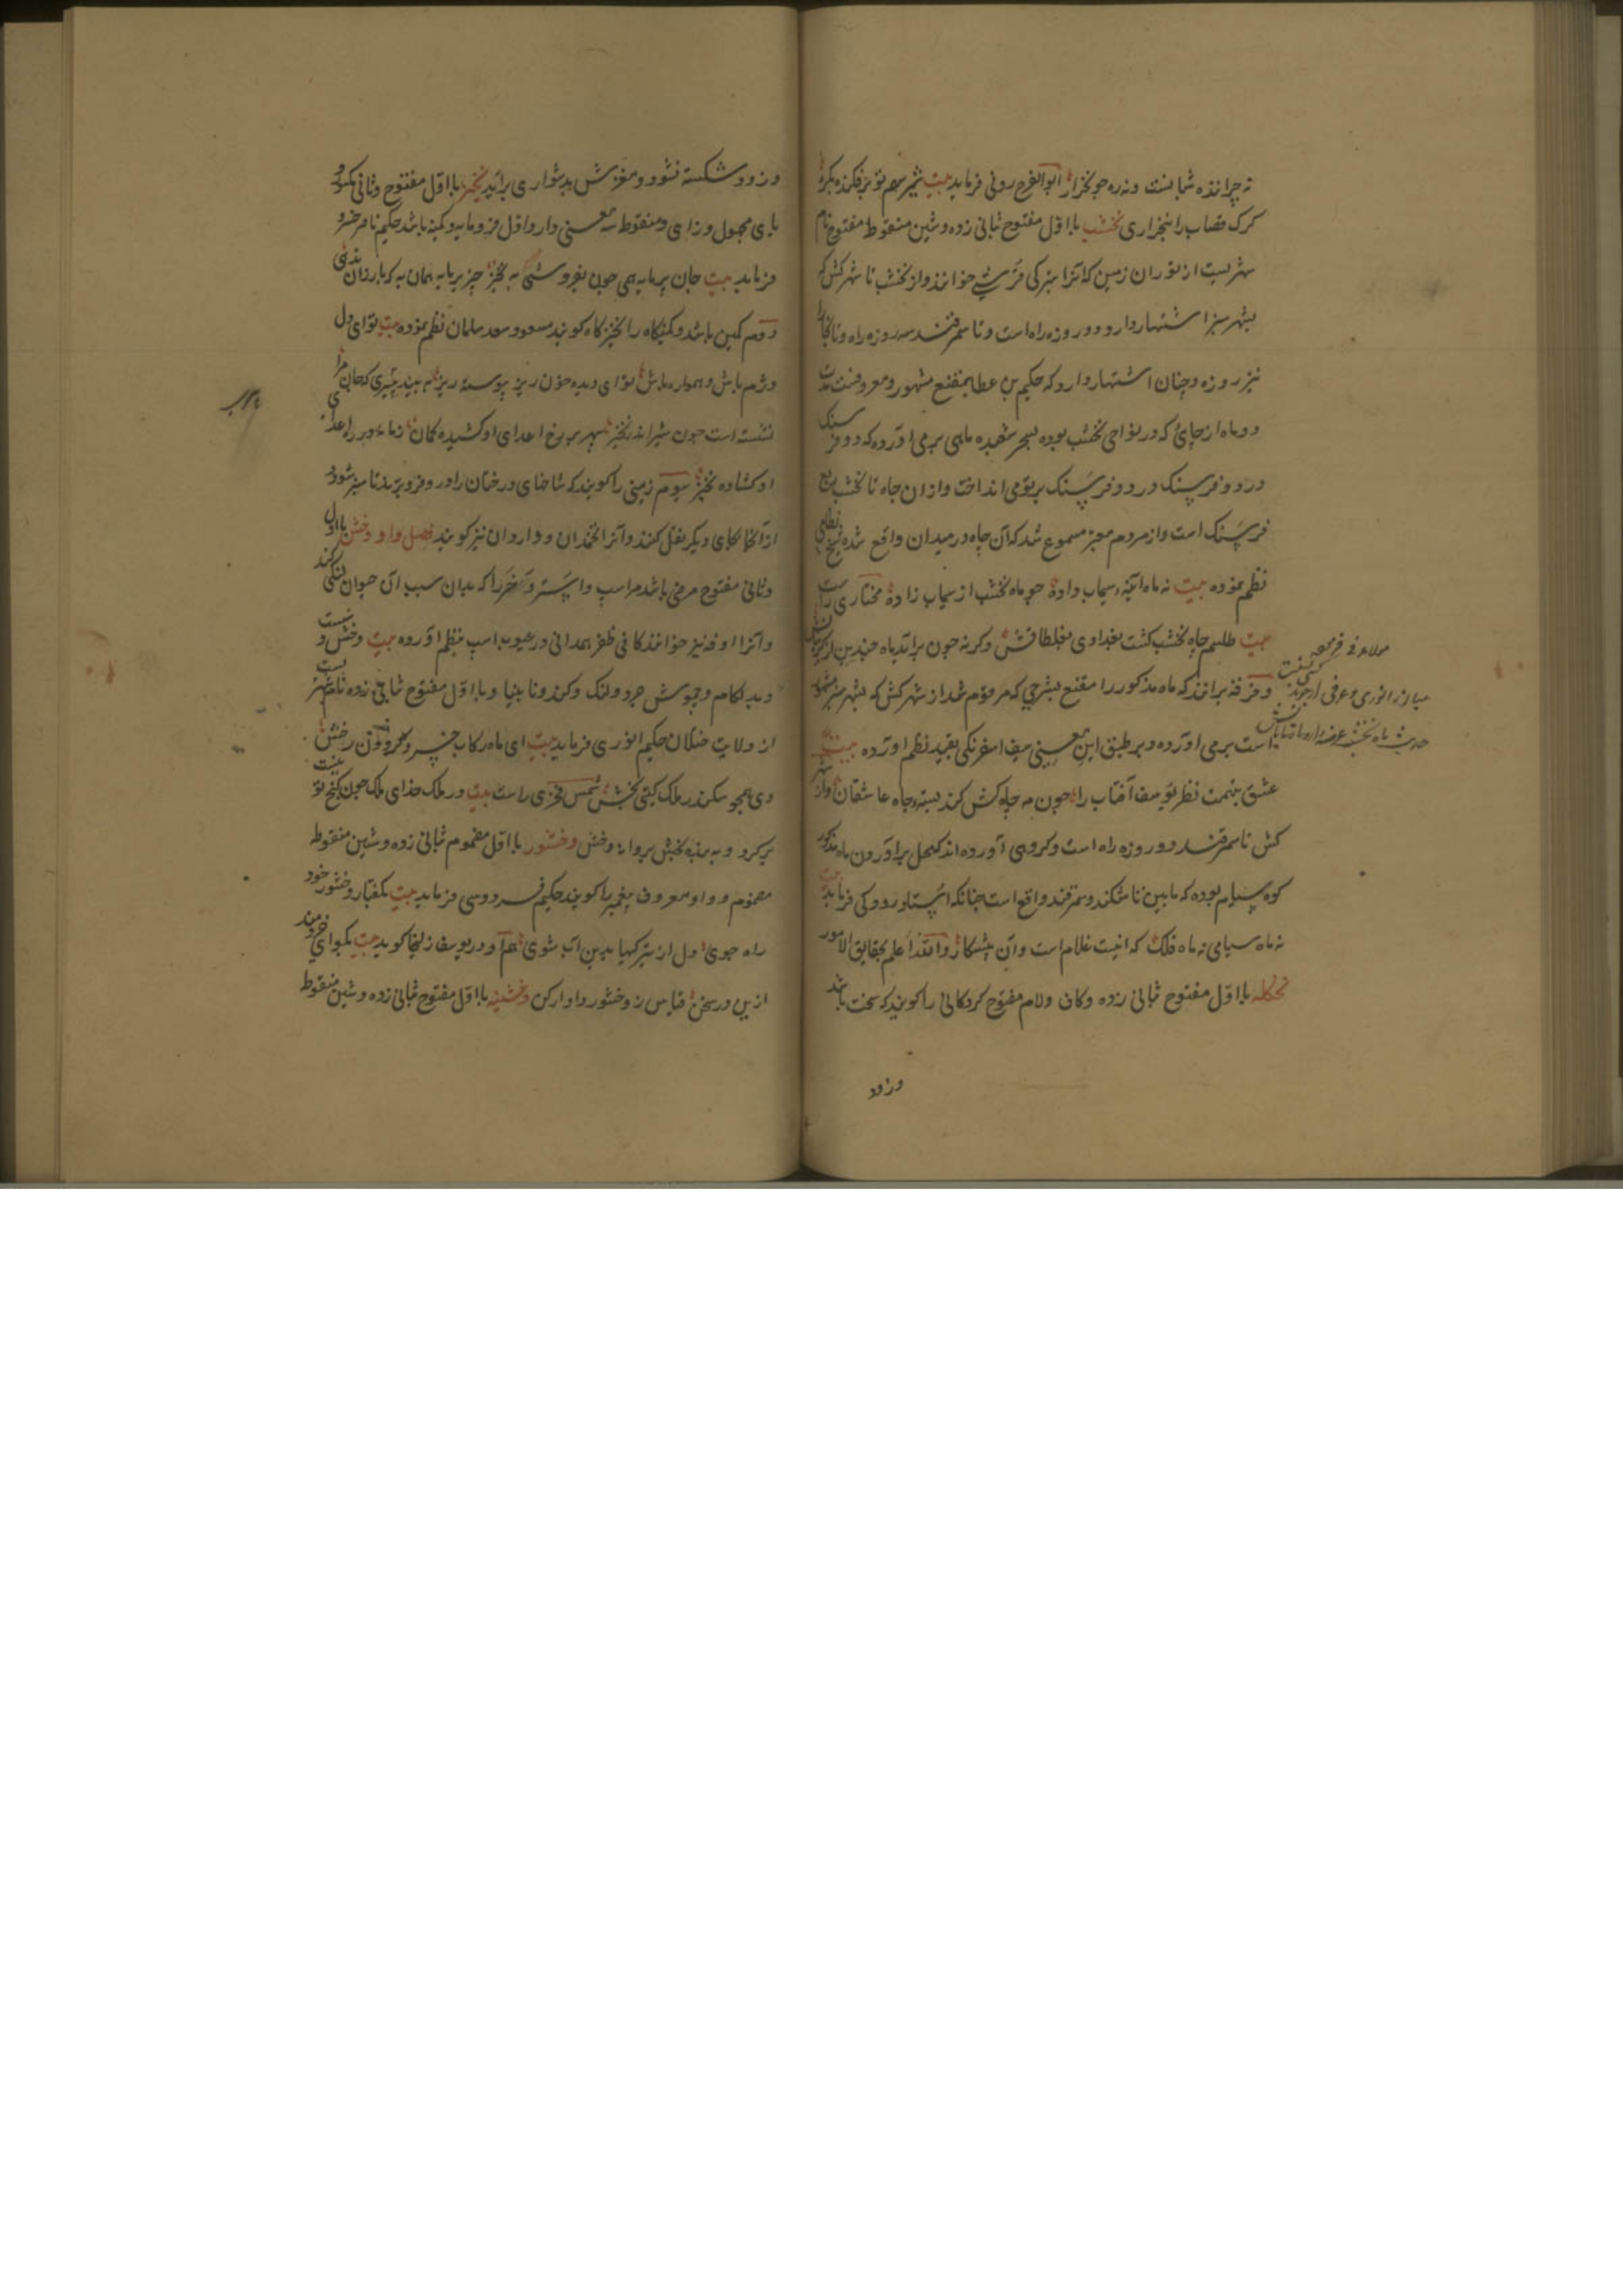 نه چرانذه شما بست ونه ره جو نخراز ابو الفرج رونی فرماید بیت
کرک قصاب را بنجزاری نخشب بااول مفتوح ثبانی زده وشین منقوط مفتوح نام
شهریست از توران زمین که آنرا بترکی قرشی خوانند واز نخشب تا شهر کش که
بشهر سبز اشتهار دارد دو روزه راه است وتا سمرقند سه روزه راه وتا بخارا
نیز روزه وچنان اشتهار دارد که حکیم بن عطا بمقنع مشهور ومعروفست مدت
دو ماه از چاهی که در نواحی نخشب بوده بسحر شعبده ماهی برمی آورده که دو فرسنک
در دو فرسنک در دو فرسنک پرتو می انداخت واز ان چاه تا نخشب پنج
فرسنک است واز مردم معتبر مسموع شد که آن چاه در میدان واقع شده شیخ نظامی
نظم نموده بیت نه ماه آئینه سیماب داده چو ماه نخشب از سیماب زاده مختاری راست
بیت طلسم چاه نخشب کشت بغدادی وکرنه چون برآید ماه چندین از کریبان
وفرقه برانند که ماه مذکور را مقنع بشرحی که مرقوم شد از شهر کش که بشهر سبز مشهور
است برمی آورده وبر طبق این معنی سیف اسفرنکی بقید نظم آورده بیت
عشق بتهمت نظر یوسف آفتاب را چون مه چاه کش کند بسته چاه عاشقان واز شهر
کش تا سمرقند دو روزه راه است وکروهی آورده اند که محل برآوردن ماه مذکور
کوه سیام بوده که مابین تاشکند وسمرقند واقع است چنانکه استاد رودکی فرماید بیت
نه ماه سیامی نه ماه فلک که اینت غلام است وآن پیشکار والله اعلم بحقایق الامور
نخکله بااول مفتوح ثبانی زده وکاف ولام مفتوح کردکانی را کویند که سخت باشد
وزود
وزود شکسته نشود ومغزش بدشواری برآید نخیز بااول مفتوح وثانی مکسور
یای مجهول وزای منقوط سه معنی دارد اول فرومایه وکمینه باشد حکیم ناصر خسرو
فرماید بیت جان پرمایه همی چون بفروشی به نخیز چیز پرمایه همان به که بارزان ندهی
دوم کمین باشد وکمینکاه را نخیز کاه کویند مسعود سعد سلمان نظم نموده بیت تو ای دل
دژم باش وهمواره باش تو ای دیده خون ریز پیوسته ریز
نشسته است چون شیر اندر نخیز
او کشاده نخیز سیوم زمینی را کویند که شاخهای درختان را در و فرو برند تا سبز شود و
از آنجا بجای دیکر نقل کنند وآنرا تخمدان و واروان نیز کویند فصل واو وخش بااول
وثانی مفتوح مرضی باشد مر اسپ واستر وخر را که بدان سبب آن حیوان لنکی کند
وآنرا اوفه نیز خوانند کافی ظفر همدانی در عیوب اسپ بنظم آورده بیت وخش و
وبد لکام وچموش حرون ولنک وکند ونابینا وبااول مفتوح ثبانی زده نام شهریست
از ولایت ختلان حکیم انوری فرماید بیت ای ماه رکاب خسرو
وی همچو سکندر ملک کیتی بخش شمس فخری راست بیت در ملک خدای ملک چون کنج تو
پر کرد وبه بنده بخش پروانه وخش وخشور بااول مضموم ثبانی زده وشین منقوطه
مضموم وواو معروف پیغمبر را کویند حکیم فردوسی فرماید بیت بکفتار وخشور خود
راه جوی دل از تیرکیها بدین آب شوی هم او در یوسف زلیخا کوید بیت بکو ای خردمند
ازین در سخن قیاس ز وخشور دادار کن وخشینه بااول مفتوح ثبانی زده وشین منقوط